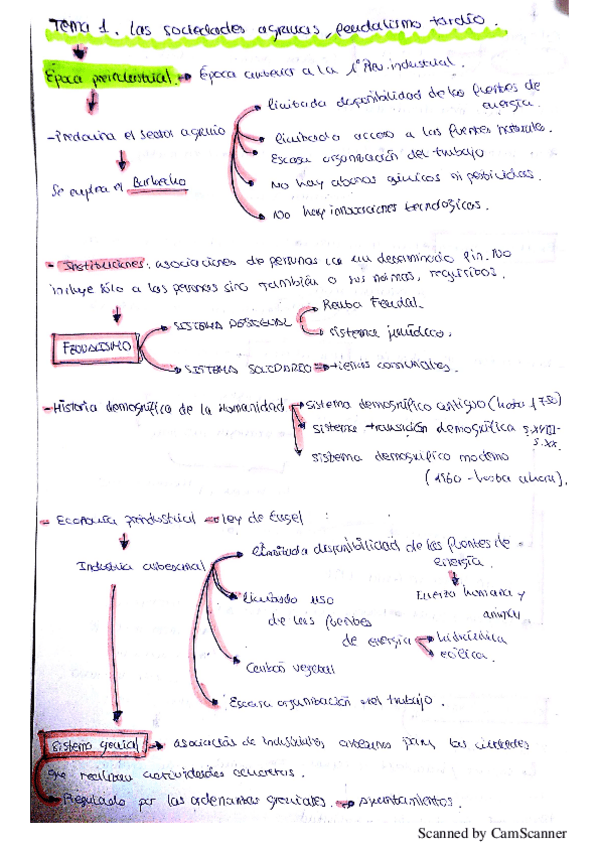 Tema 1. Las sociedades agrarias, feudalismo tardío.
Época preindustrial. → Época anterior a la 1ª Rev. industrial.
- Predomina el sector agrario
limitada disponibilidad de las fuentes de energía.
limitado acceso a las fuentes naturales.
Escasa organización del trabajo
No hay abonos químicos ni pesticidas.
No hay innovaciones tecnológicas.
Se emplea el Barbecho
- Instituciones: asociaciones de personas con un determinado fin. No
incluye sólo a las personas sino también a sus normas, requisitos.
FEUDALISMO
SISTEMA DESIGUAL
Renta Feudal.
sistema jurídico.
SISTEMA SOLIDARIO → tierras comunales.
- Historia demográfica de la Humanidad → sistema demográfico antiguo (hasta 1750)
sistema transición demográfica s.XVIII-
s.XX
sistema demográfico moderno
(1960 - hasta ahora).
- Economía preindustrial → ley de Engel :
Industria artesanal
limitada disponibilidad de las fuentes de
energía.
Fuerza humana y
animal
limitado uso
de las fuentes
de energía
hidráulica
eólica.
Carbón vegetal
Escasa organización del trabajo.
Sistema gremial → asociación de industriales para las ciudades
que realizan actividades
Regulado por las ordenanzas gremiales. → ayuntamientos.
Scanned by CamScanner